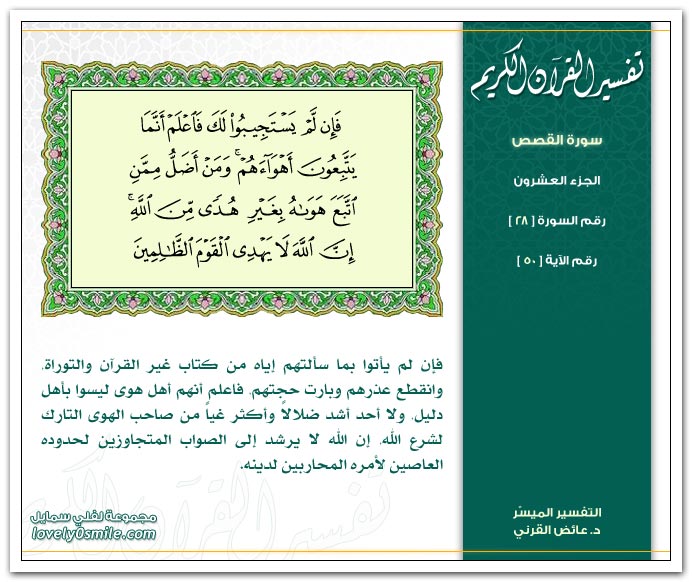 تفسير القرآن الكريم
سورة القصص
الجزء العشرون
رقم السورة [ ٢٨ ]
رقم الآية [ ٥٠ ]
فَإِن لَّمْ يَسْتَجِيبُوا۟ لَكَ فَٱعْلَمْ أَنَّمَا
يَتَّبِعُونَ أَهْوَآءَهُمْ ۚ وَمَنْ أَضَلُّ مِمَّنِ
ٱتَّبَعَ هَوَىٰهُ بِغَيْرِ هُدًى مِّنَ ٱللَّهِ ۚ
إِنَّ ٱللَّهَ لَا يَهْدِى ٱلْقَوْمَ ٱلظَّـٰلِمِينَ
فإن لم يأتوا بما سألتهم إياه من كتاب غير القرآن والتوراة،
وانقطع عذرهم وبارت حجتهم، فاعلم أنهم أهل هوى ليسوا بأهل
دليل، ولا أحد أشد ضلالاً وأكثر غياً من صاحب الهوى التارك
لشرع الله، إن الله لا يرشد إلى الصواب المتجاوزين لحدوده
العاصين لأمره المحاربين لدينه.
تفسير القرآن الكريم
التفسير الميسّر
د. عائض القرني
مجموعة لفلي سمايل
lovely0smile.com